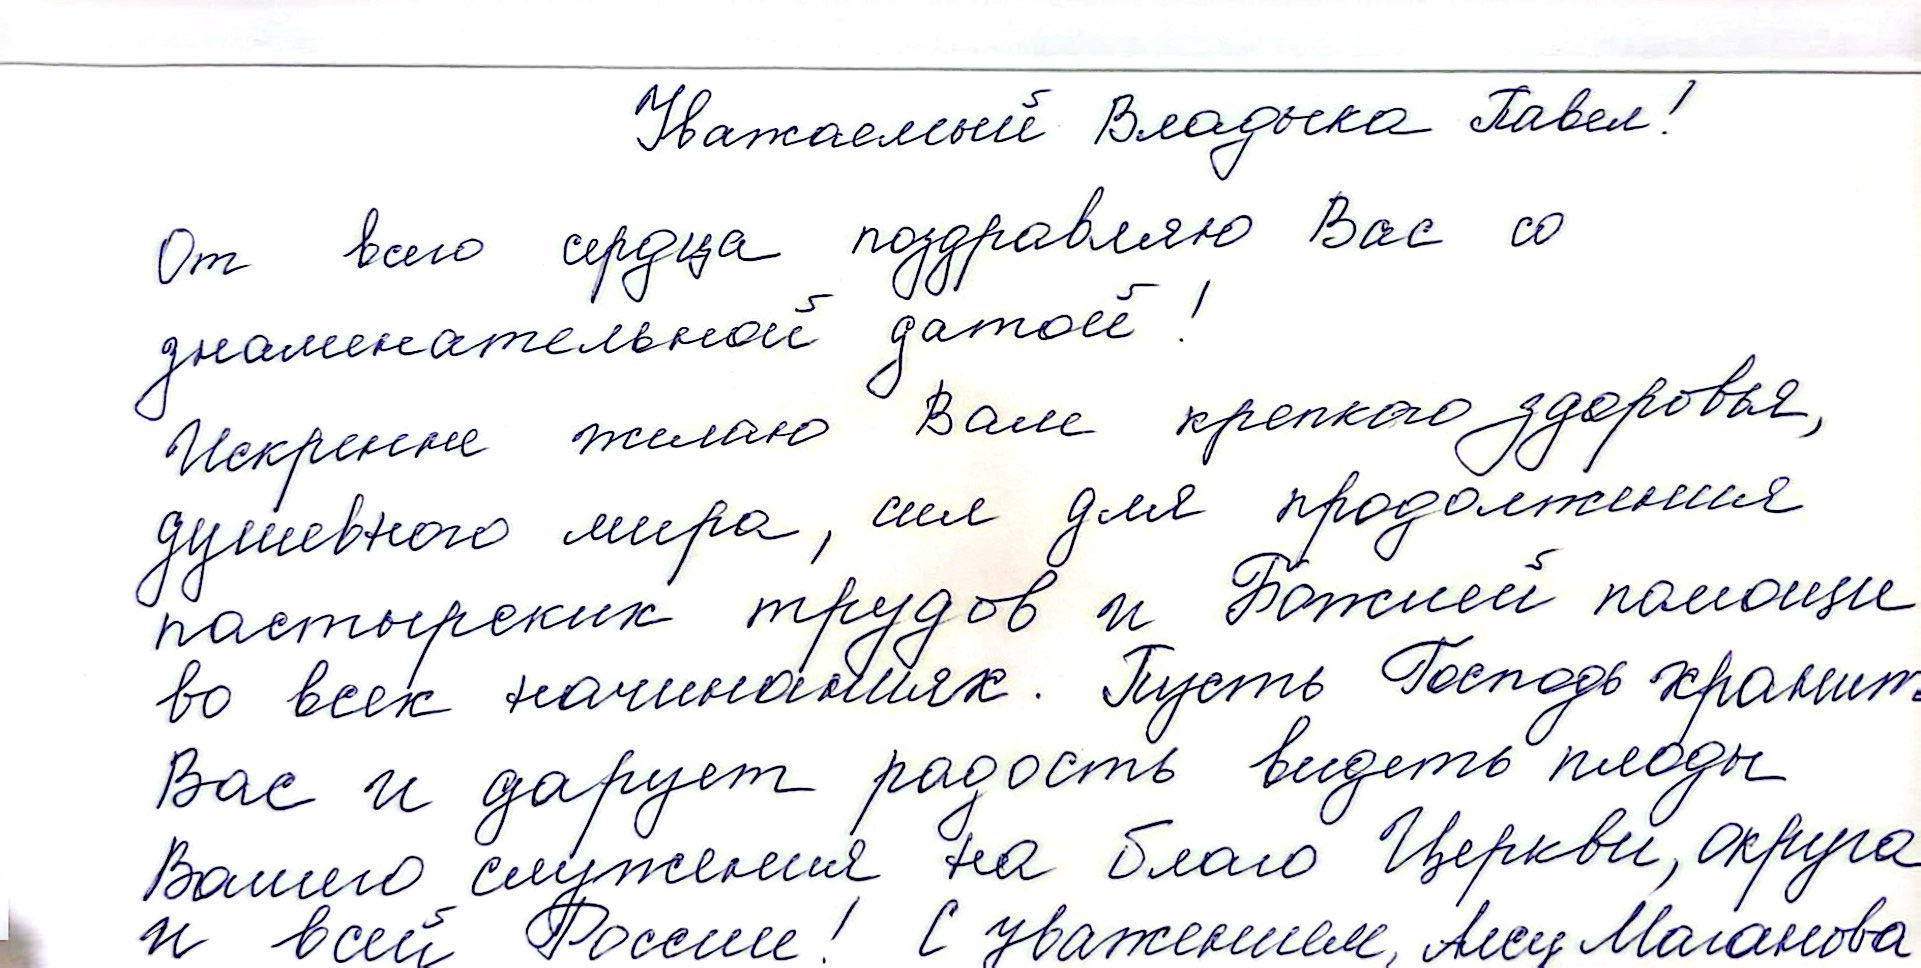 Уважаемый Владыка Павел!
От всего сердца поздравляю Вас со
знаменательной датой!
Искренне желаю Вам крепкого здоровья,
душевного мира, сил для продолжения
пастырских трудов и Божией помощи
во всех начинаниях. Пусть Господь хранит
Вас и дарует радость видеть плоды
Вашего служения на благо Церкви, округа
и всей России! С уважением, Алсу Маганова